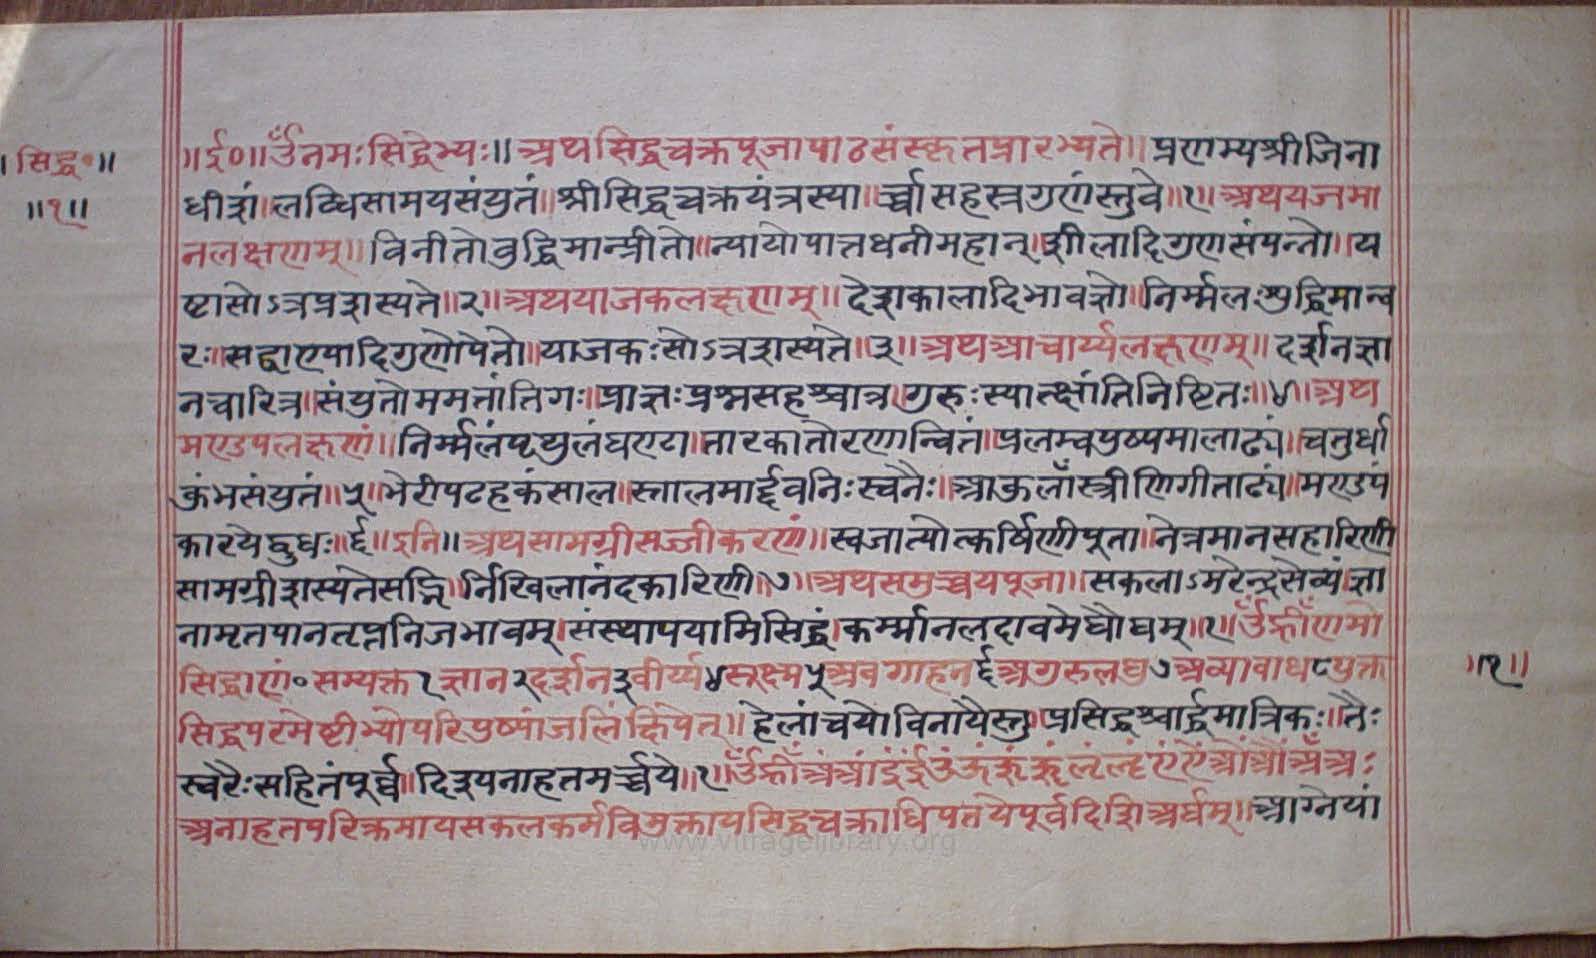 । सिद्ध॰॥
॥१॥
॥ई०॥ॐनमःसिद्धेभ्यः॥अथसिद्धचक्रपूजापाठसंस्कृतप्रारभ्यते॥प्रणम्यश्रीजिना
धीशं॥लब्धिसामयसंयुतं॥श्रीसिद्धचक्रयंत्रस्या॥र्च्चासहस्रगुणंस्तुवे॥१॥अथयजमा
नलक्षणम्॥विनीतोबुद्धिमान्प्रीतो॥न्यायोपात्तधनीमहान्॥शीलादिगुणसंपन्नो॥य
ष्टासोऽत्रप्रशस्यते॥२॥अथयाजकलक्षणम्॥देशकालादिभावज्ञो॥निर्म्मलःशुद्धिमान्व
रः॥सद्वाण्यादिगुणोपेतो॥याजकःसोऽत्रशस्यते॥३॥अथआचार्य्यलक्षणम्॥दर्शनज्ञा
नचारित्र॥संयुतोममतांतिगः॥प्राज्ञःप्रश्नसहश्चात्र॥गुरुःस्यात्क्षांतिनिष्टितः॥४॥अथ
मण्डपलक्षणं॥निर्म्मलंपृथुलंघण्टा॥तारकातोरणान्वितं॥प्रलम्बपुष्पमालाढ्यं॥चतुर्धा
कुंभसंयुतं॥५॥भेरीपटहकंसाल॥स्तालमार्द्दवनिःस्वनैः॥आकुलँस्त्रीणिगीताढ्यं॥मण्डपं
कारयेद्बुधः॥६॥इति॥अथसामग्रीसज्जीकरणं॥स्वजात्योत्कर्षिणीपूता॥नेत्रमानसहारिणी
सामग्रीशस्यतेसद्भि॥र्निखिलानंदकारिणी॥७॥अथसमुच्चयपूजा॥सकलाऽमरेन्द्रसेव्यं।ज्ञा
नामृतपानतृप्तनिजभावम्।संस्थापयामिसिद्धं।कर्म्मानलदावमेघौघम्॥१॥ॐह्रीँणमो
सिद्धाणं॰सम्यक्त१ज्ञान२दर्शन३वीर्य्य४सूक्ष्म५अवगाहन६अगुरुलघु७अव्यावाध८युक्त
॥१॥
सिद्धपरमेष्टीभ्योपरिपुष्पांजलिंक्षिपेत्॥हेलांचयोविनायैस्तु॥प्रसिद्धश्चार्द्धमात्रिकः॥तैः
स्वरैःसहितंपूर्व्व॥दिश्यनाहतमर्च्चये॥१॥ॐह्रीँअंआंइंईंउंऊंऋंॠंलृंॡंएंऐंओंऔंअँअः
अनाहतपरिक्रमायसकलकर्मविमुक्तायसिद्धचक्राधिपतयेपूर्वदिशिअर्घम्॥आग्नेयां
www.vitragelibrary.org